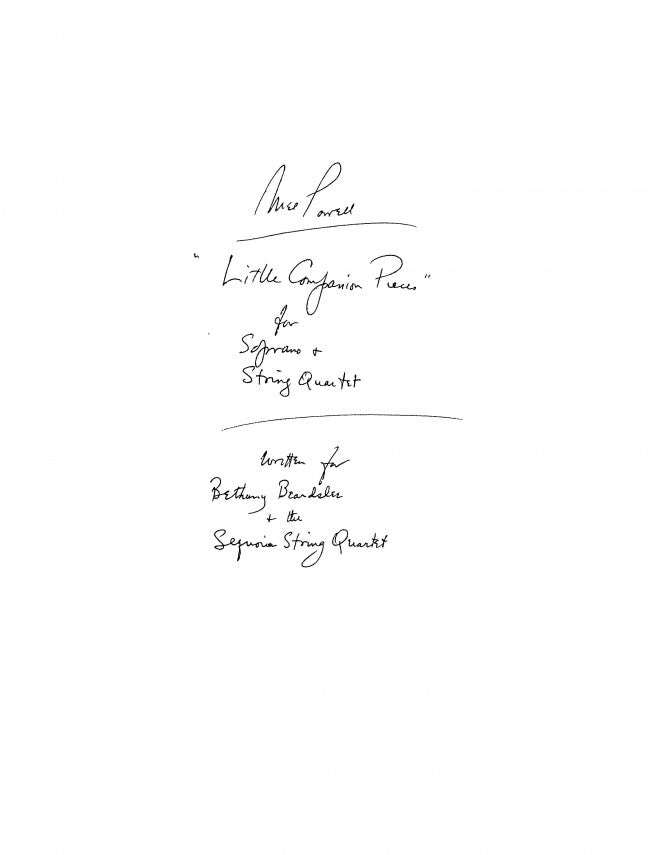 Mel Powell
"Little Companion Pieces"
for
Soprano +
String Quartet
written for
Bethany Beardslee
+ the
Sequoia String Quartet